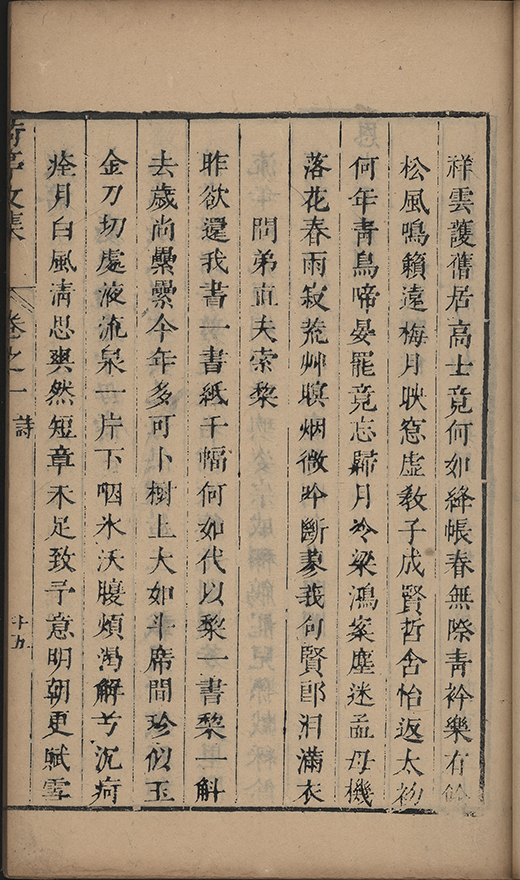 祥雲護舊居高士竟何如絳帳春無際青衿樂有餘
松風鳴籟遠梅月映窓虛敎子成賢哲含怡返太初
何年靑鳥啼宴罷竟忘歸月冷梁鴻案塵迷孟母機
落花春雨寂荒艸暝烟微吟斷蓼莪句賢郎淚滿衣
問弟直夫索棃
昨欲還我書一書紙千幅何如代以棃一書棃一斛
去歲尚纍纍今年多可卜樹上大如斗席間珍似玉
金刀切處液流泉一片下咽氷沃腹煩渴解兮沉疴
痊月白風淸思爽然短章未足致予意明朝更賦雪
荷亭文集
卷之一
詩
十五